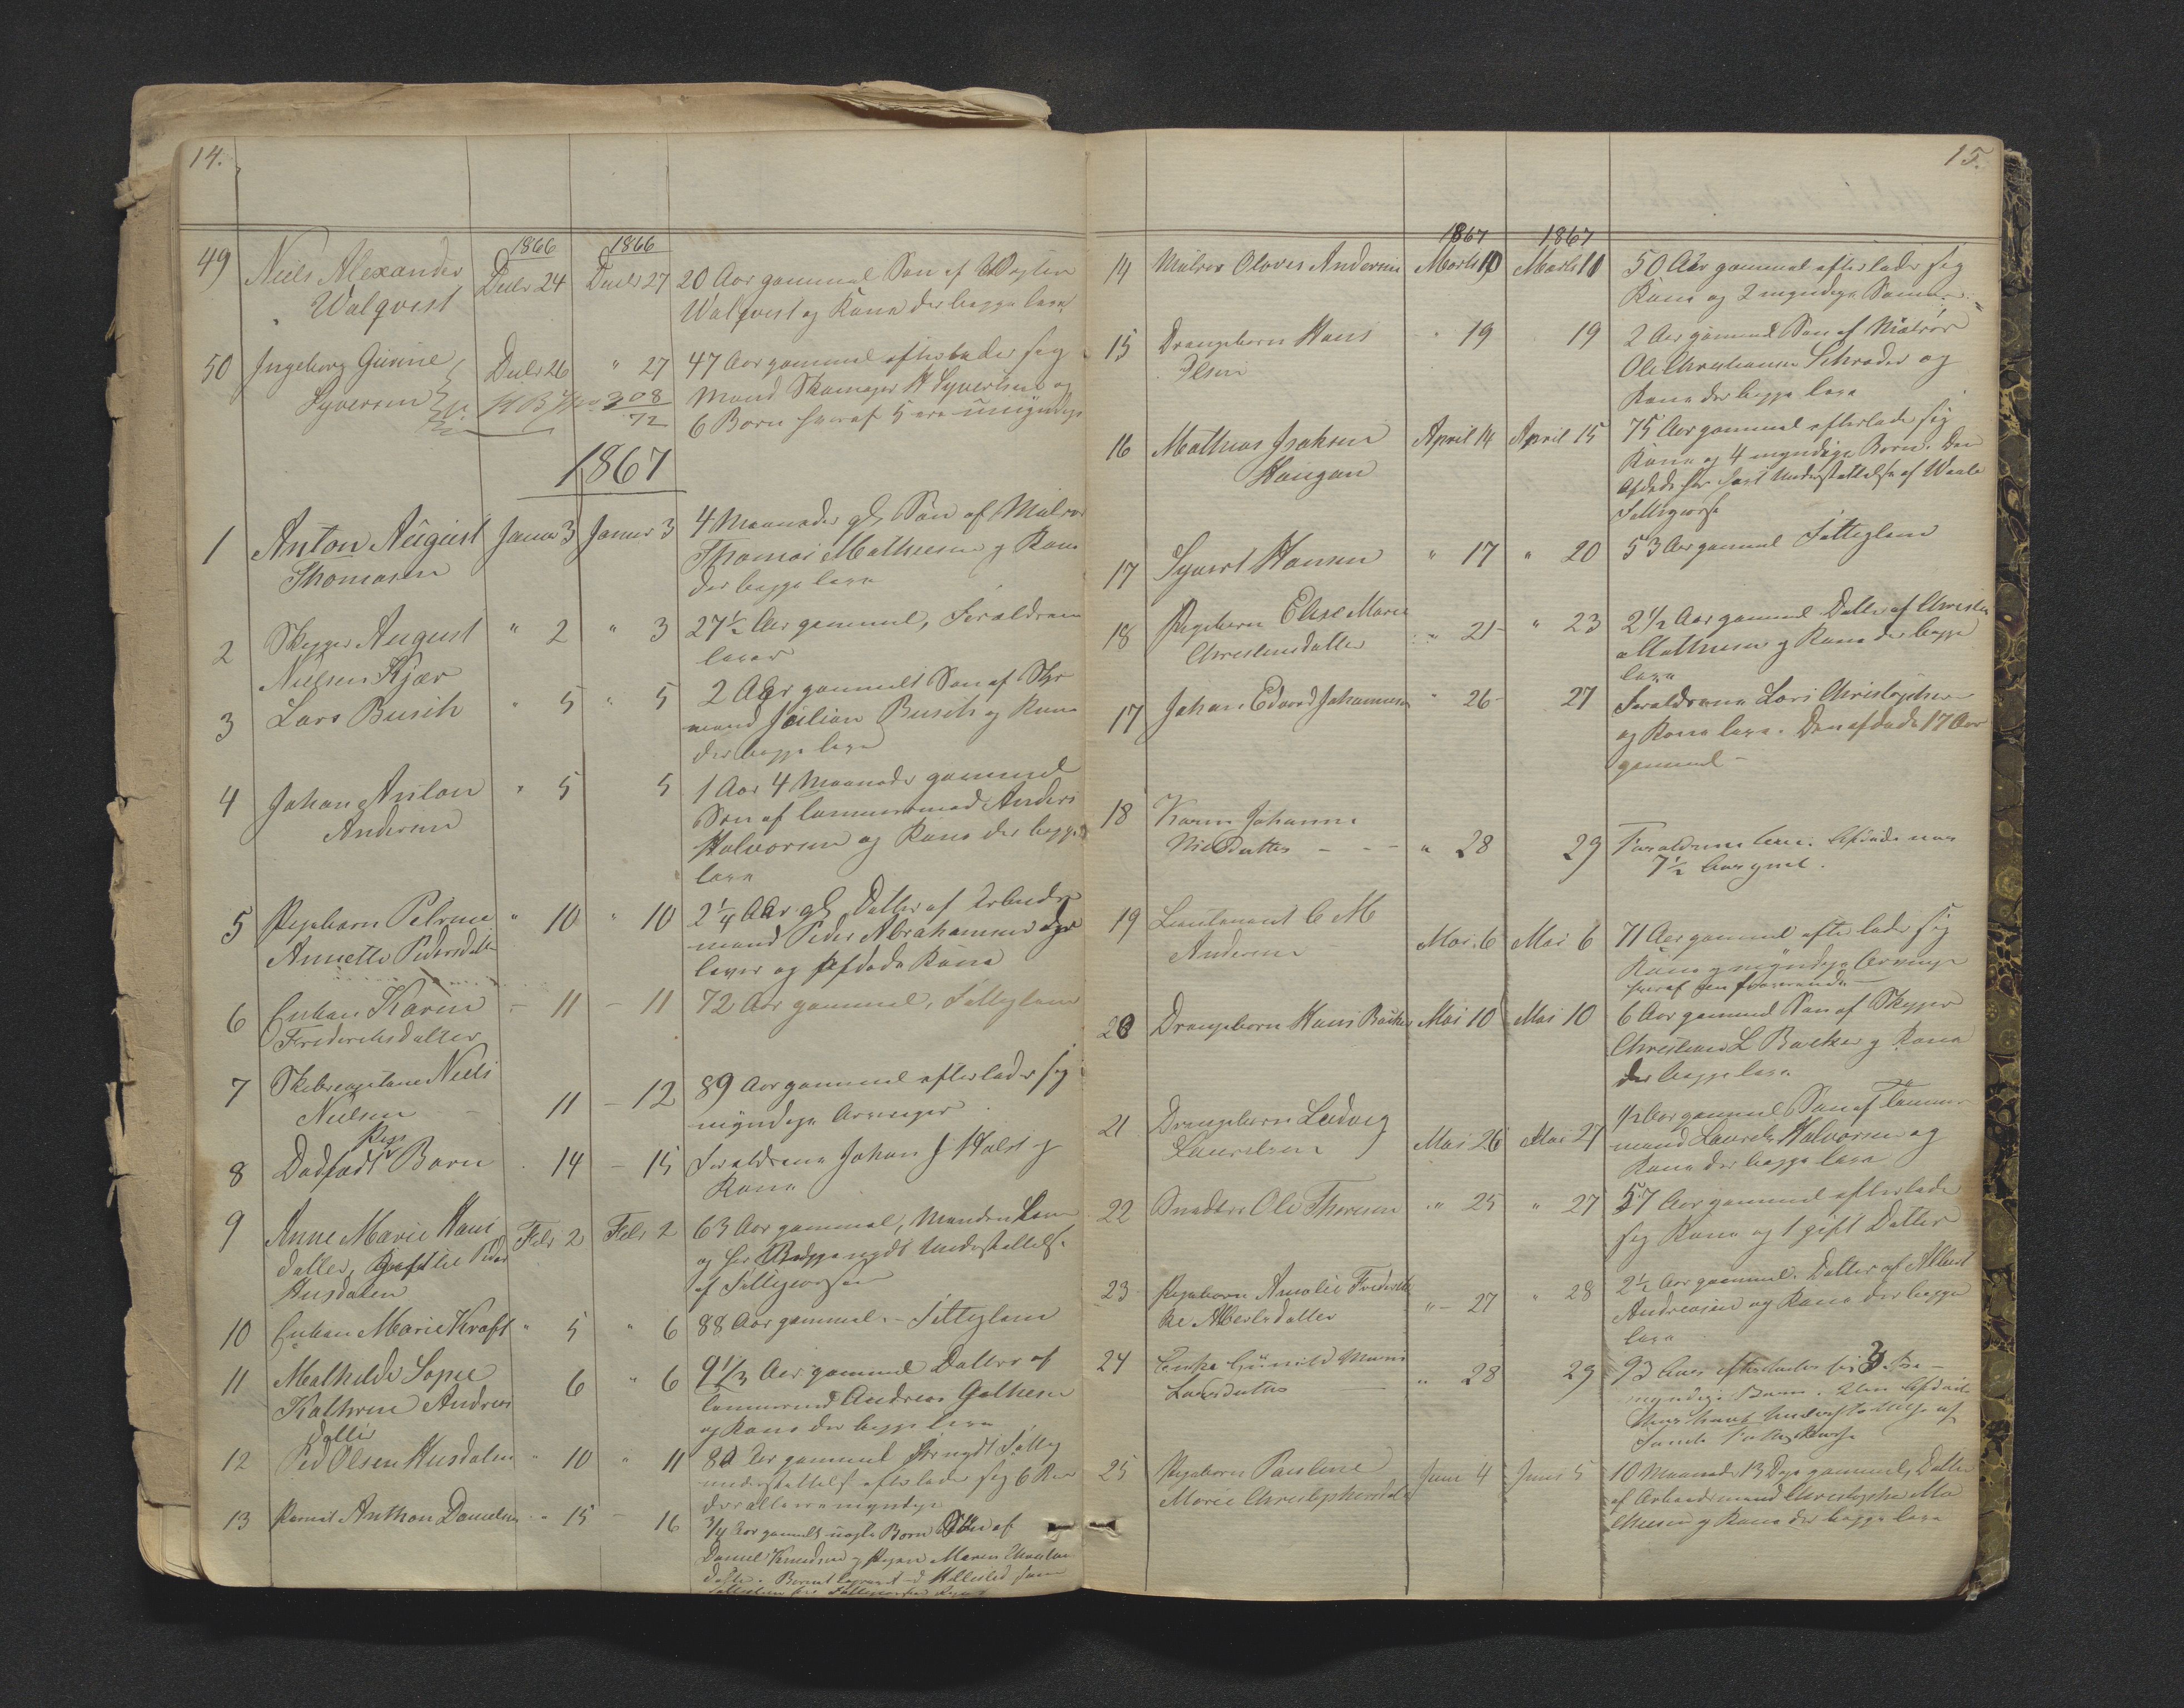 14.
1866 1866
49 Niels Alexander Decbr 24 Decbr 27 20 Aar gammel Søn af
Walqvist Walqvist og Kone der begge leve
50 Ingeborg Gurine Decbr 26 " 27 47 Aar gammel efterlader sig
Syversen 308 Mand Skomager H Syvertsen og
72 6 Børn hvoraf 5 ere umyndige
1867
1 Anton August Januar 3 Januar 3 4 Maaneder gl Søn af Matros
Thomasen Thomas Mathiesen og Kone
der begge leve
2 Skipper August " 2 " 3 27½ Aar gammel, Forældrene
Nielsen Kjær lever
3 Lars Busch " 5 " 5 2 Aar gammelt Søn af
mand Julian Busch og Kone
der begge leve
4 Johan Anton " 5 5 1 Aar 4 Maaneder gammel
Andersen Søn af Tømmermand Anders
Halvorsen og Kone der begge
leve
5 Pigebarn Petrine " 10 " 10 2¼ Aar gl Datter af Arbeids
Annette Pedersdatter mand Peder Abrahamsen
lever og afdøde Kone
6 Enken Karen - 11 - 11 72 Aar gammel, Fattiglem
Frederiksdatter
7 Skibscapitaine Niels 11 - 12 89 Aar gammel efterlader sig
Nielsen myndige Arvinger
Pige
8 Dødfødt Barn 14 - 15 Forældrene Johan J Holst og
Kone
9 Anne Marie Hans Febr 2 Febr 2 63 Aar gammel, Manden Lever
datter, Peder og har Begge nydt Understøttelse
Husdalen af Fattigcassen
10 Enken Marie Kraft " 5 " 6 88 Aar gammel - Fattiglem
11 Mathilde Sopie 6 " 6 9 1/3 Aar gammel Datter af
Kathrine Andreas Tømmermand Andreas Gathesen
datter og Kone der begge leve
12 Ped Olsen Husdalen " 10 " 11 80 Aar gammel nydt Fattig
understøttelse efterlader sig 6 Børn
der alle ere myndige
13 Bernt Anthon Danielsen " 15 - 16 3/4 Aar gammelt uægte Barn Søn af
Daniel Knudsen og Pigen Maren
15.
1867 1867
14 Matros Olaves Andersen Marts 10 Marts 11 50 Aar gammel efterlader sig
Kone og 2 myndige Sønner
15 Drengebarn Hans " 19 19 2 Aar gammel Søn af Matros
Olsen Ole Christiansen Schrøder og
Kone der begge leve
16 Mathias Isaksen April 14 April 15 75 Aar gammel efterlader sig
Haugan Kone og 4 myndige Børn. Den
Afdøde har havt Understøttelse af
Fattigcasse
17 Syvert Hansen " 17 " 20 53 Aar gammel Fattiglem
18 Pigebarn Elise Marie " 21 " 23 2½ Aar gammel Datter af Christen
Christensdatter Mathiesen og Kone der begge
leve
17 Johan Edvard Johannesen " 26 27 Forældrene Lars Christophersen
og Kone leve. Den afdøde 17 Aar
gammel -
18 Karen Johanne
Nielsdatter - - - " 28 29 Forældrene leve. Afdøde var
7½ Aar gml.
19 Lieutenant C M Mai 6 Mai 6 71 Aar gammel efterlader sig
Andersen Kone og myndige Arvinger
hvoraf en fraværende -
20 Drengebarn Hans Backer Mai 10 Mai 10 6 Aar gammel Søn af Skipper
Christian L Backer og Kone
der begge leve
21 Drengebarn Ludvig Mai 26 Mai 27 ½ Aar gammel Søn af Tømmer
Lauritsen mand Laurits Halvorsen og
Kone der begge leve
22 Ole Thoresen " 25 " 27 57 Aar gammel efterlader
sig Kone og 1 gift Datter
23 Pigebarn Amalie Fredrik " - 27 " 28 2½ Aar gammel. Datter af Albert
ke Albertsdatter Andreasen og Kone der begge
leve
24 Enke Gunild Marie " 28 29 93 Aar efterlader sig 3
Larsdatter myndige Børn. Den Afdøde
har havt Understøttelse af
25 Pigebarn Pauline Juni 4 Juni 5 10 Maaneder 13 Dage gammel, Datter
Marie Christophersdatter af Arbeidsmand Christopher Ma
thiesen og Kone der begge leve